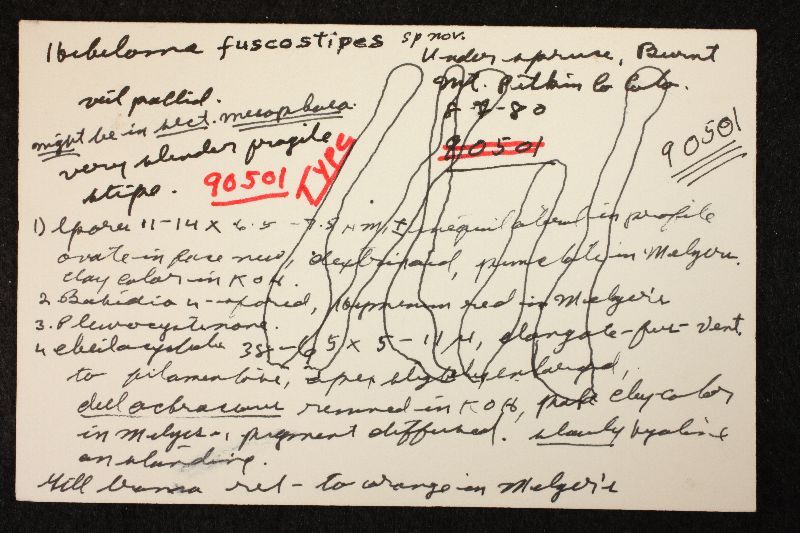 Hebeloma fuscostipes sp nov.
Under spruce, Burnt
Mt. Pitkin Co Colo.
8-7-80
90501
90501
veil pallid.
might be in sect. mesophaea.
very slender fragile
stipe. 90501 TYPE
1) Spores 11-14 X 6.5-7.5 µm, ± inequilateral in profile
ovate in face view, dextrinoid, punctate in Melzers.
clay color in KOH.
2. Basidia 4-spored, hymenium red in Melzer's
3. Pleurocysti none.
4 cheilocystidia X 5-11 µ, elongate-fus-vent.
to filamentose, apex slightly enlarged,
dull ochraceous revived in KOH, pale clay color
in Melzer, pigment diffused. slowly hyaline
on standing.
Gill trama red- to orange in Melzer's